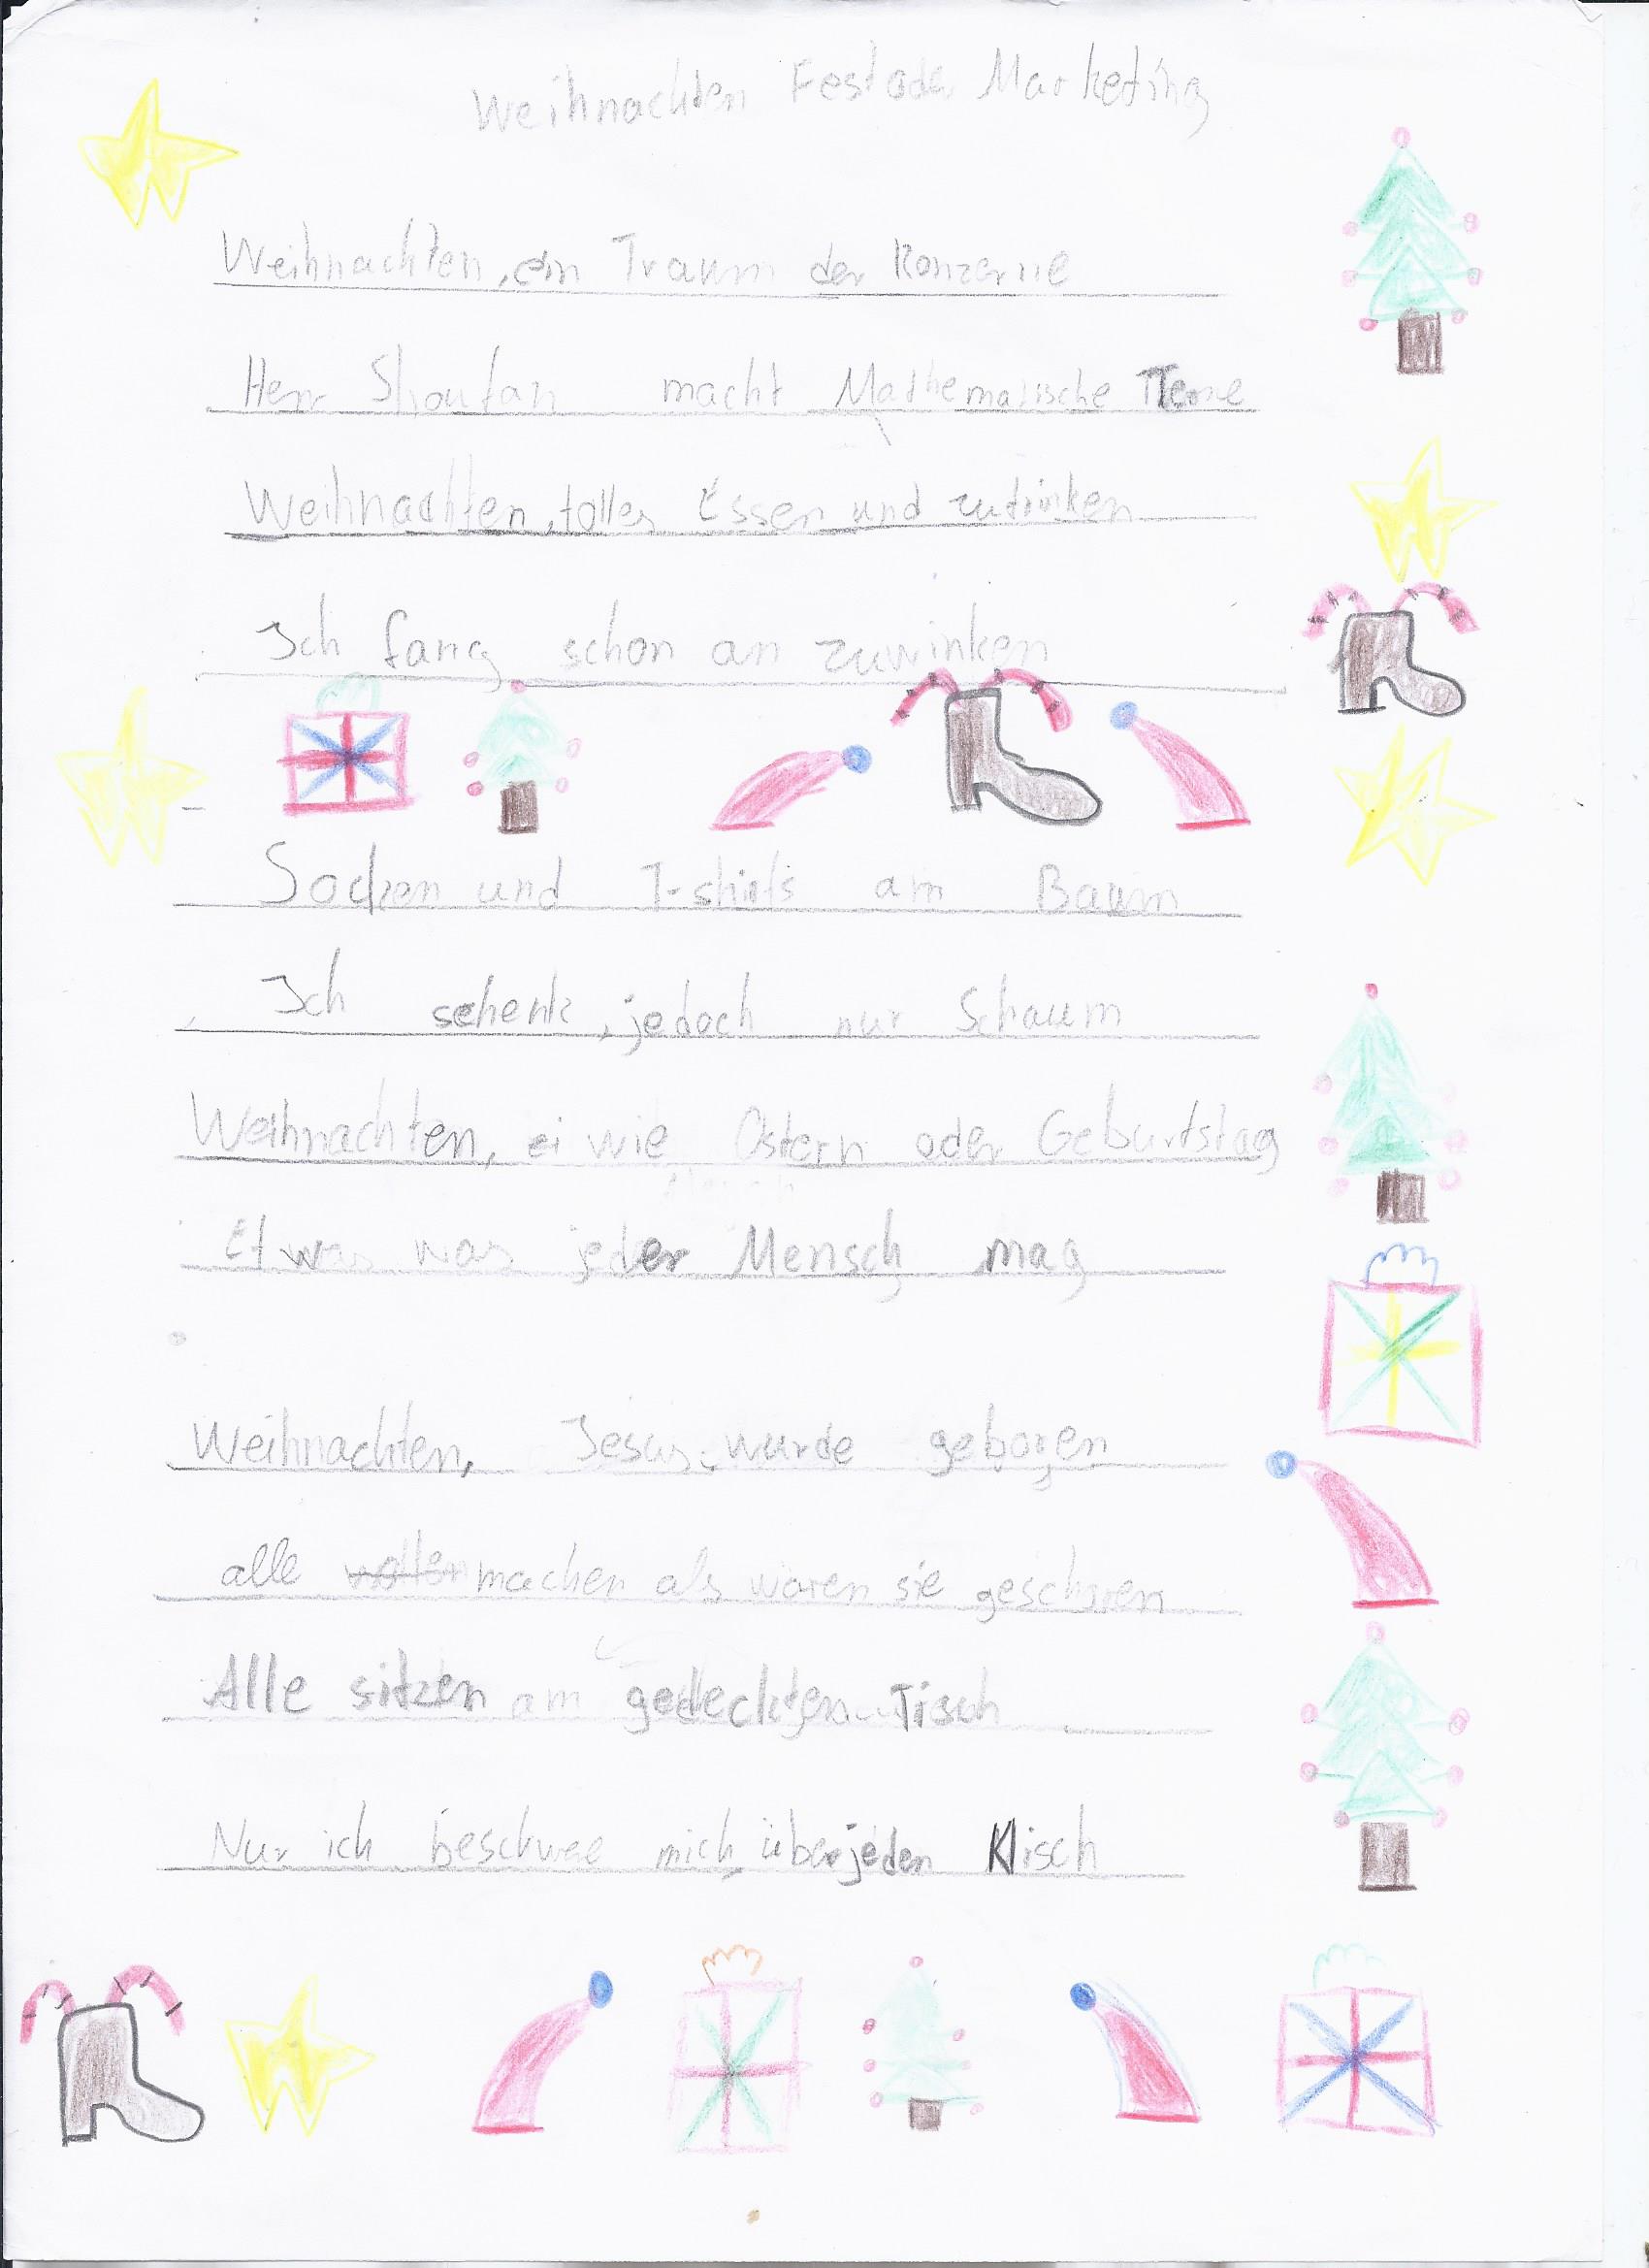 Weihnachten Fest oder Marketing
Weihnachten, ein Traum der Konzerne
Herr Shoufan macht Mathematische Terme
Weihnachten, tolles Essen und zutrinken
Ich fang schon an zuwinken
Socken und T-shirts am Baum
Ich schenk, jedoch nur Schaum
Weihnachten, ei wie Ostern oder Geburtstag
Etwas was jeder Mensch mag
Weihnachten, Jesus wurde geboren
alle machen als wären sie geschoren
Alle sitzen am gedeckten Tisch
Nur ich beschwee mich über jeden Klisch